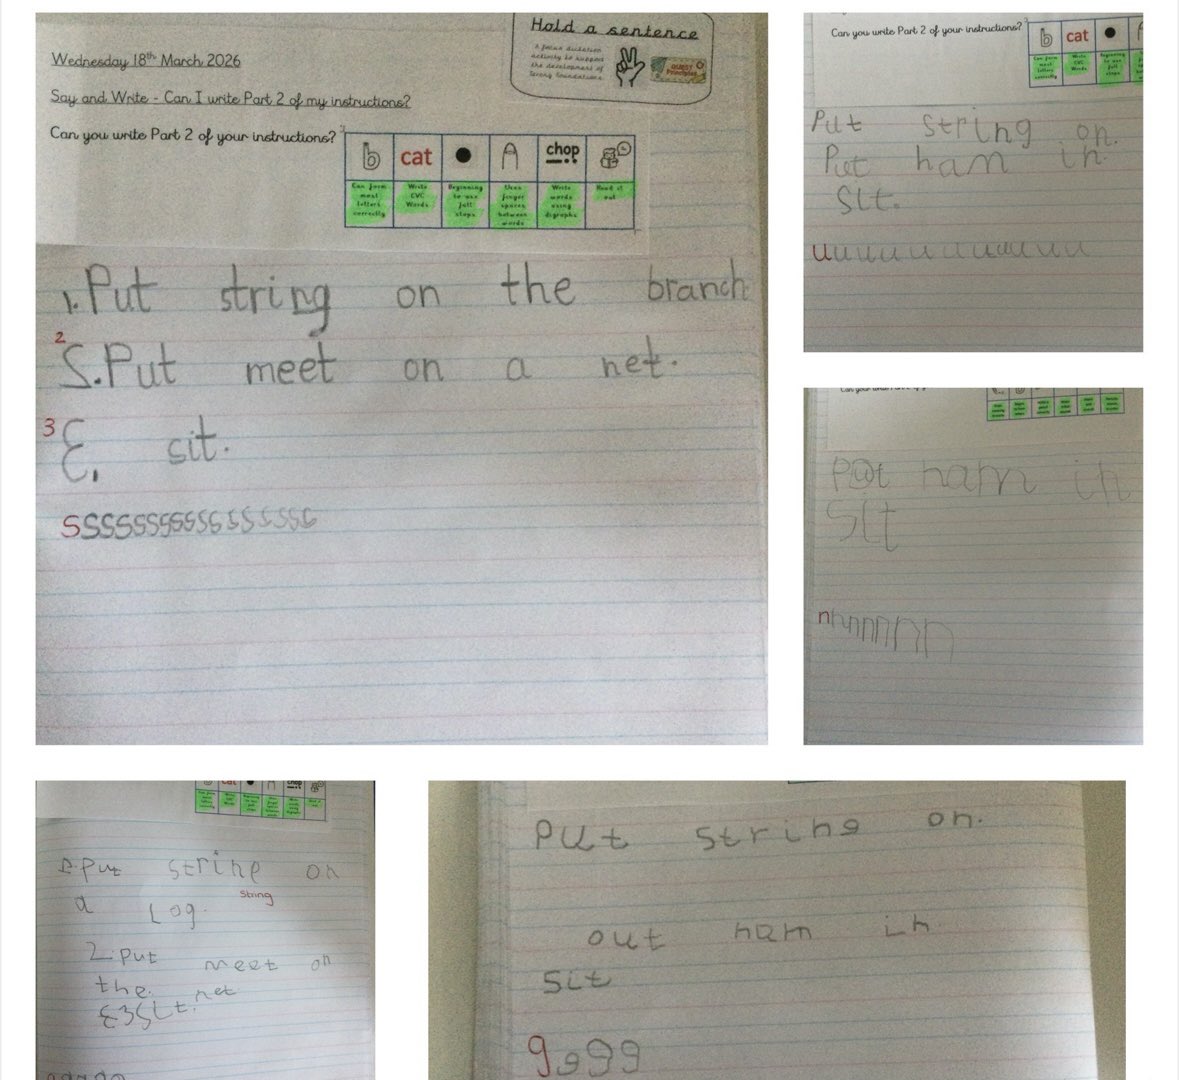 Hold a sentence
A focus dictation
activity to support
the development of
strong foundations
QUEST
Principles
Wednesday 18th March 2026
Say and Write - Can I write Part 2 of my instructions?
Can you write Part 2 of your instructions?
b cat A chop
Can form most letters correctly
Write CVC Words
Beginning to use full stops
Uses finger spaces between words
Write words using digraphs
Read it out
1. Put string on the branch
2
S. Put meet on a net.
3
Ɛ. sit.
ssssssssssssssss
Can you write Part 2 of your instructions?
b cat
Can form most letters correctly
Write CVC Words
Beginning to use full stops
Put string on.
Put ham in.
Sit.
uuuuuuuuuuuu
Put ham in
Sit
nhnnnnnn
cat chop
2.Put strine on
string
a Log.
2.put meet on
the. net
Ɛ3Sit.
Put string on.
out ham in.
Sit
gggg